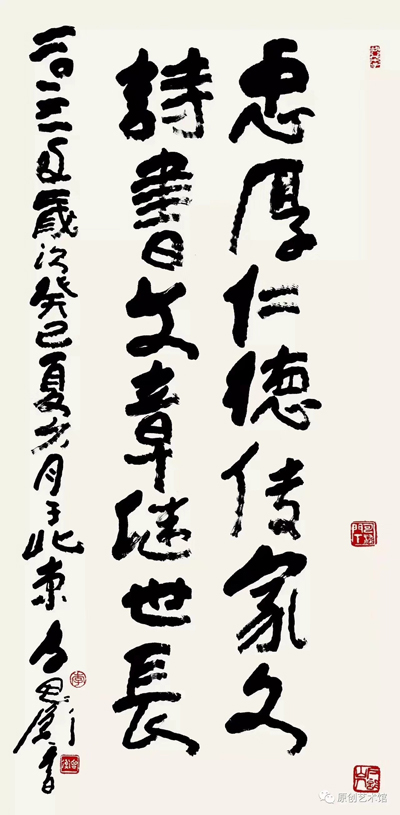 忠厚仁德传家久
詩書文章继世長
二〇一三年歲次癸巳夏六月于北京
原创艺术馆